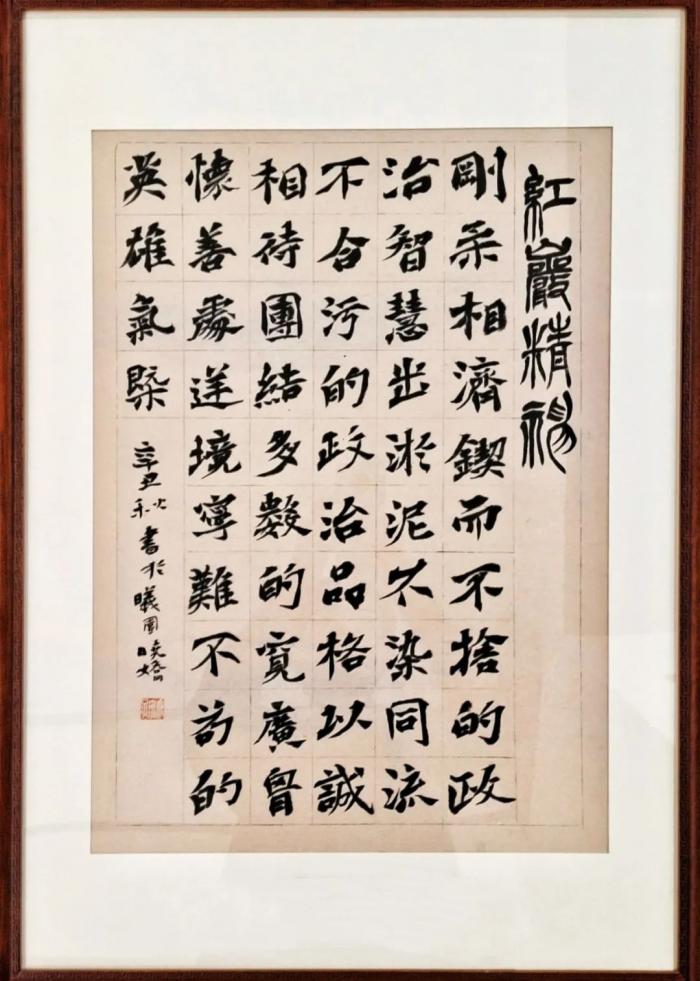 紅巖精神
剛柔相濟鍥而不捨的政
治智慧出淤泥不染同流
不合污的政治品格以誠
相待團結多數的寬廣胷
懷善處逆境寧難不苟的
英雄氣槩
辛丑秋書於曦園